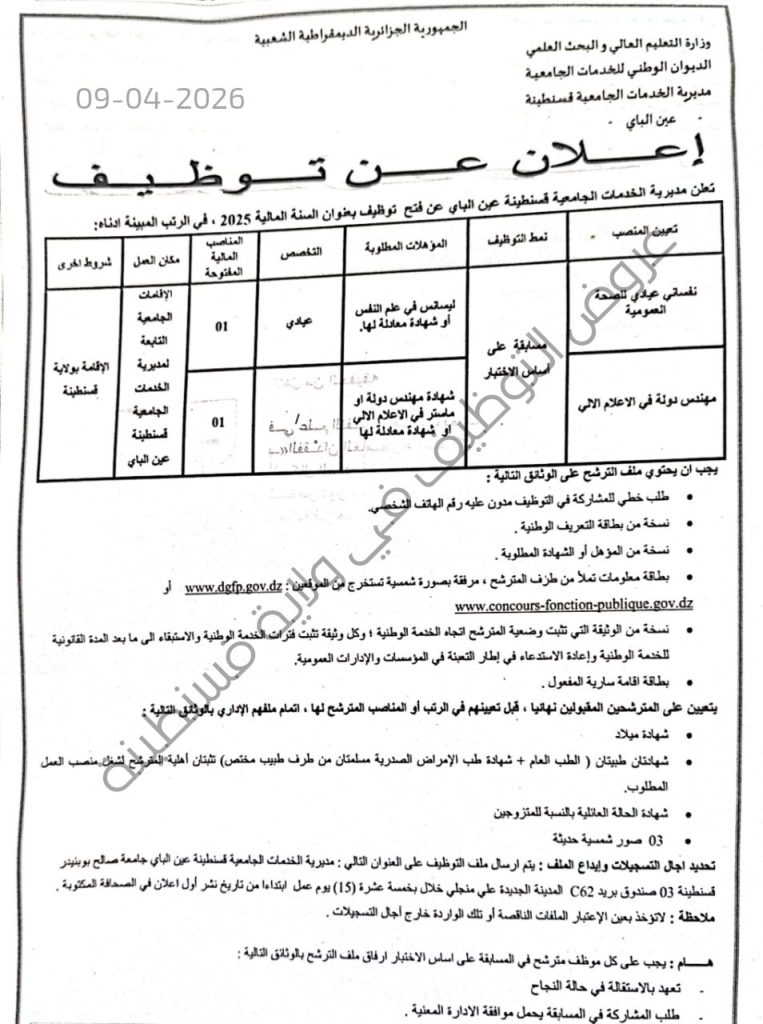 الجمهورية الجزائرية الديمقراطية الشعبية
وزارة التعليم العالي و البحث العلمي
الديوان الوطني للخدمات الجامعية
مديرية الخدمات الجامعية قسنطينة
- عين الباي -
09-04-2026
إعلان عن توظيف
تعلن مديرية الخدمات الجامعية قسنطينة عين الباي عن فتح توظيف بعنوان السنة المالية 2025 ، في الرتب المبينة ادناه:
تعيين المنصب
نمط التوظيف
المؤهلات المطلوبة
التخصص
المناصب
المالية
المفتوحة
مكان العمل
شروط اخرى
نفساني عيادي للصحة
العمومية
مسابقة على
أساس الاختبار
ليسانس في علم النفس
أو شهادة معادلة لها.
عيادي
01
الإقامات
الجامعية
التابعة
لمديرية
الخدمات
الجامعية
قسنطينة
عين الباي
الإقامة بولاية
قسنطينة
مهندس دولة في الاعلام الالي
شهادة مهندس دولة او
ماستر في الاعلام الالي
او شهادة معادلة لها
/
01
يجب ان يحتوي ملف الترشح على الوثائق التالية :
• طلب خطي للمشاركة في التوظيف مدون عليه رقم الهاتف الشخصي.
• نسخة من بطاقة التعريف الوطنية .
• نسخة من المؤهل أو الشهادة المطلوبة .
• بطاقة معلومات تملأ من طرف المترشح ، مرفقة بصورة شمسية تستخرج من الموقعين : www.dgfp.gov.dz أو
www.concours-fonction-publique.gov.dz
• نسخة من الوثيقة التي تثبت وضعية المترشح اتجاه الخدمة الوطنية ؛ وكل وثيقة تثبت فترات الخدمة الوطنية والاستبقاء الى ما بعد المدة القانونية
للخدمة الوطنية وإعادة الاستدعاء في إطار التعبئة في المؤسسات والإدارات العمومية.
• بطاقة اقامة سارية المفعول .
يتعيين على المترشحين المقبولين نهانيا ، قبل تعيينهم في الرتب أو المناصب المترشح لها ، اتمام ملفهم الإداري بالوثائق التالية :
• شهادة ميلاد
• شهادتان طبيتان ( الطب العام + شهادة طب الإمراض الصدرية مسلمتان من طرف طبيب مختص) تثبتان أهلية المترشح لشغل منصب العمل
المطلوب.
• شهادة الحالة العائلية بالنسبة للمتزوجين
• 03 صور شمسية حديثة
تحديد اجال التسجيلات وإيداع الملف : يتم ارسال ملف التوظيف على العنوان التالي : مديرية الخدمات الجامعية قسنطينة عين الباي جامعة صالح بوبنيدر
قسنطينة 03 صندوق بريد C62 المدينة الجديدة علي منجلي خلال بخمسة عشرة (15) يوم عمل ابتداءا من تاريخ نشر أول اعلان في الصحافة المكتوبة .
ملاحظة : لاتؤخذ بعين الإعتبار الملفات الناقصة أو تلك الواردة خارج أجال التسجيلات .
هــــام : يجب على كل موظف مترشح في المسابقة على اساس الاختبار ارفاق ملف الترشح بالوثائق التالية :
- تعهد بالاستقالة في حالة النجاح
- طلب المشاركة في المسابقة يحمل موافقة الادارة المعنية .
عروض التوظيف في ولاية قسنطينة